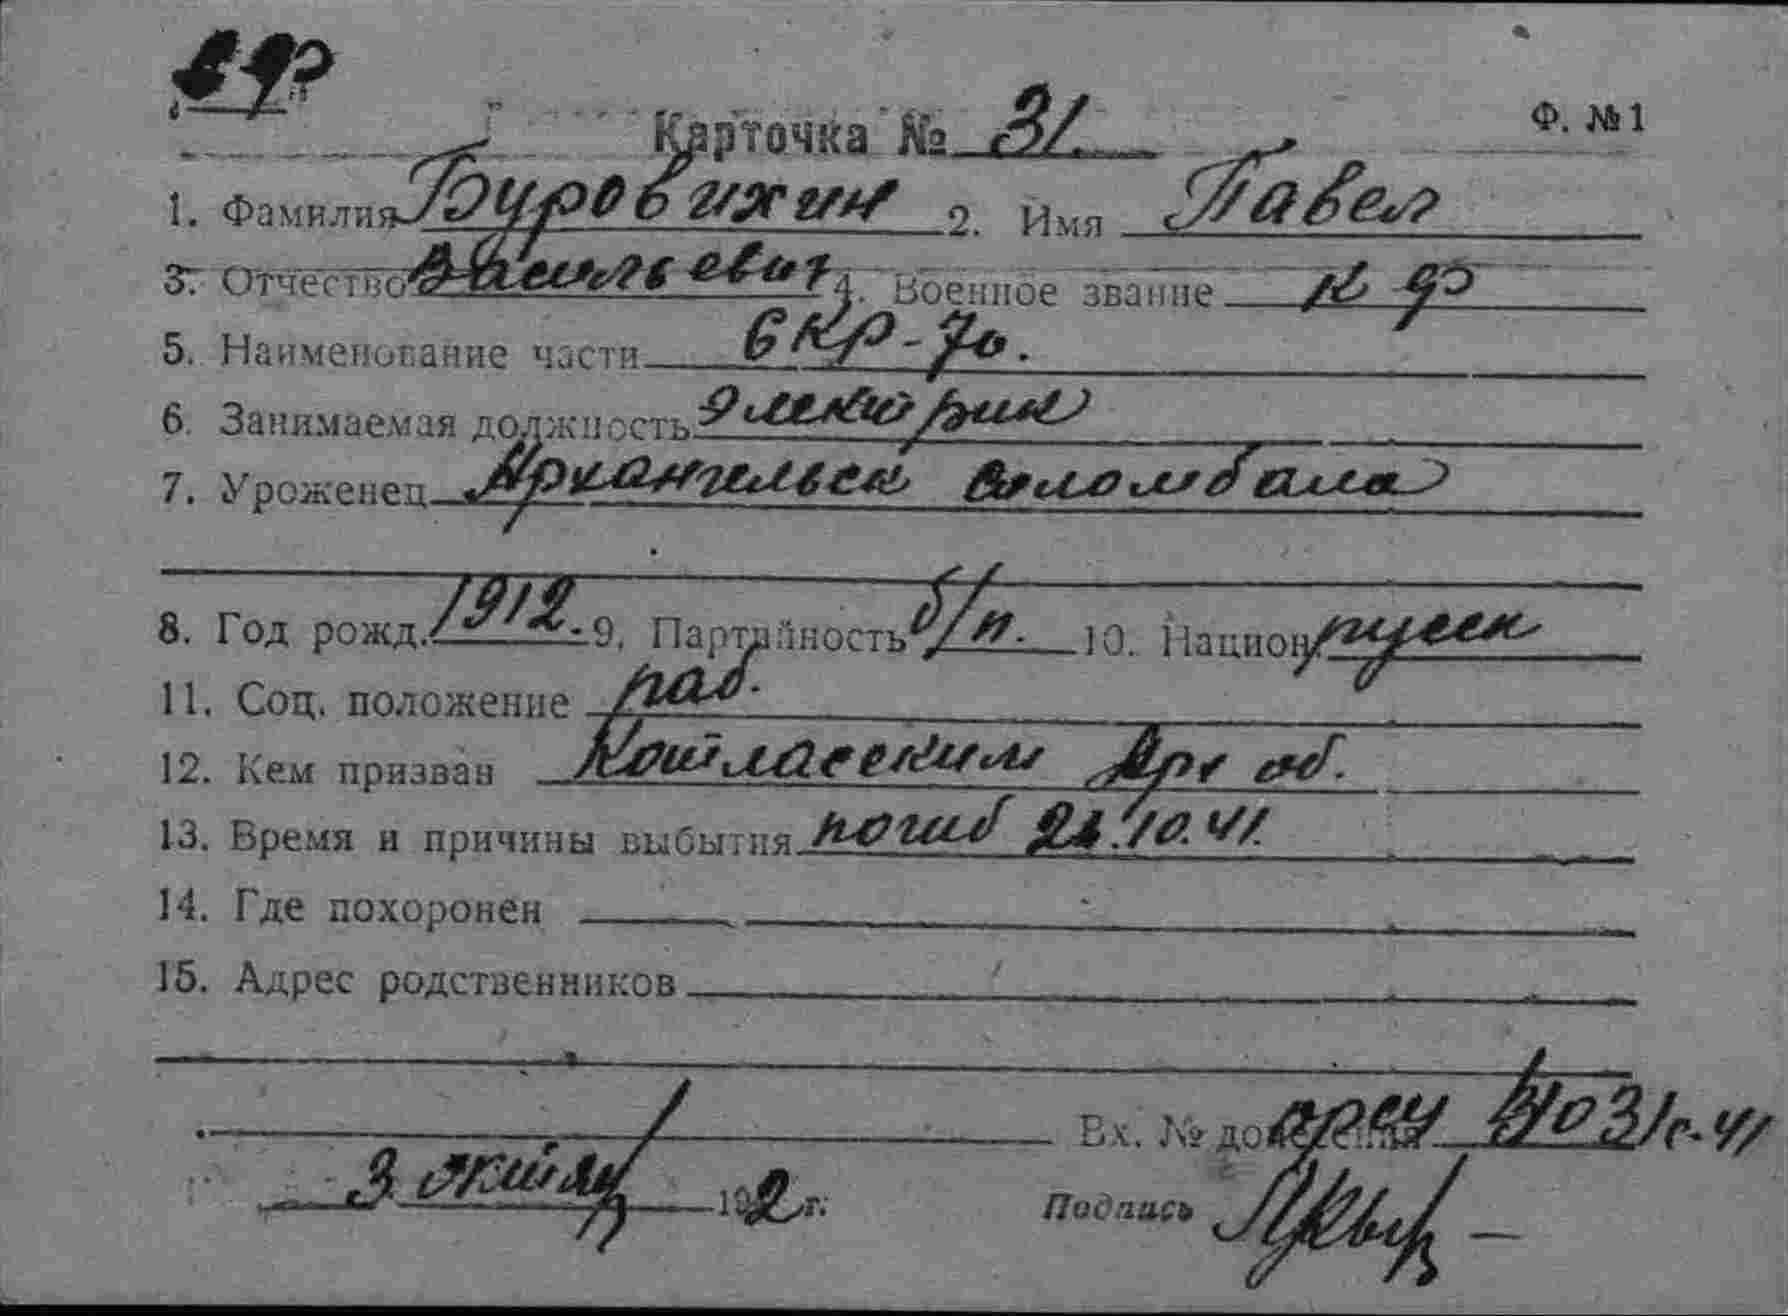 Ф. № 1
Карточка № 31.
1. Фамилия Буровихин 2. Имя Павел
3. Отчество Васильевич 4. Военное звание К ф
5. Наименование части СКР-70.
6. Занимаемая должность Электрик
7. Уроженец Архангельск Соломбала
8. Год рожд. 1912. 9. Партийность б/п. 10. Национ. русск
11. Соц. положение раб.
12. Кем призван Котласским Арх об.
13. Время и причины выбытия погиб 21.10.41.
14. Где похоронен
15. Адрес родственников
Вх. № донесения 031с-41
3 октяб 1942 г. Подпись